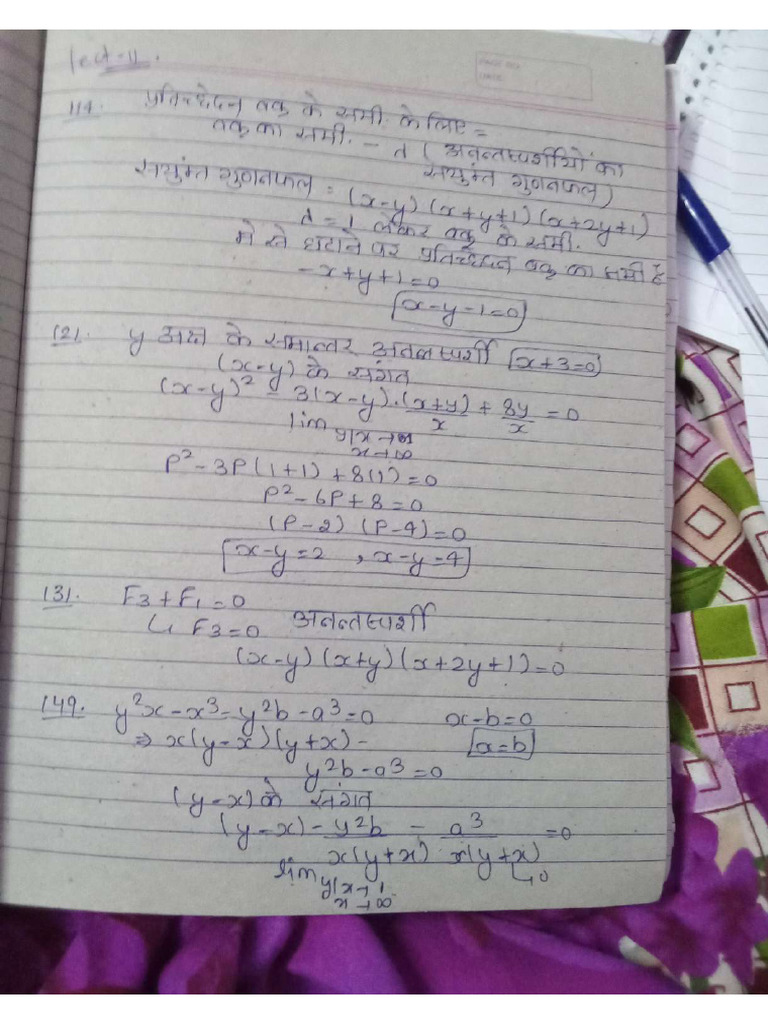 Lect-11.
114. प्रतिच्छेदन वक्र के समी. के लिए =
वक्र का समी. - d ( अनन्तस्पर्शीयों का
सयुंक्त गुणनफल)
सयुंक्त गुणनफल = (x-y) (x+y+1) (x+2y+1)
d = 1 लेकर वक्र के समी.
मे से घटाने पर प्रतिच्छेदन वक्र का समी है
-x+y+1=0
x-y-1=0
121. y अक्ष के समान्तर अनन्तस्पर्शी x+3=0
(x-y) के संगत
(x-y)² - 3(x-y).(x+y)/x + 8y/x = 0
lim y/x→1 x→∞
P²-3P(1+1)+8(1)=0
P²-6P+8=0
(P-2) (P-4)=0
x-y=2 , x-y=4
131. F3+F1=0
↳ F3=0 अनन्तस्पर्शी
(x-y) (x+y) (x+2y+1)=0
149. y²x-x³-y²b-a³=0 x-b=0
⇒ x(y-x)(y+x)- x=b
y²b-a³=0
(y-x) के संगत
(y-x) - y²b/x(y+x) - a³/x(y+x) =0
↳0
lim y/x→1 x→∞